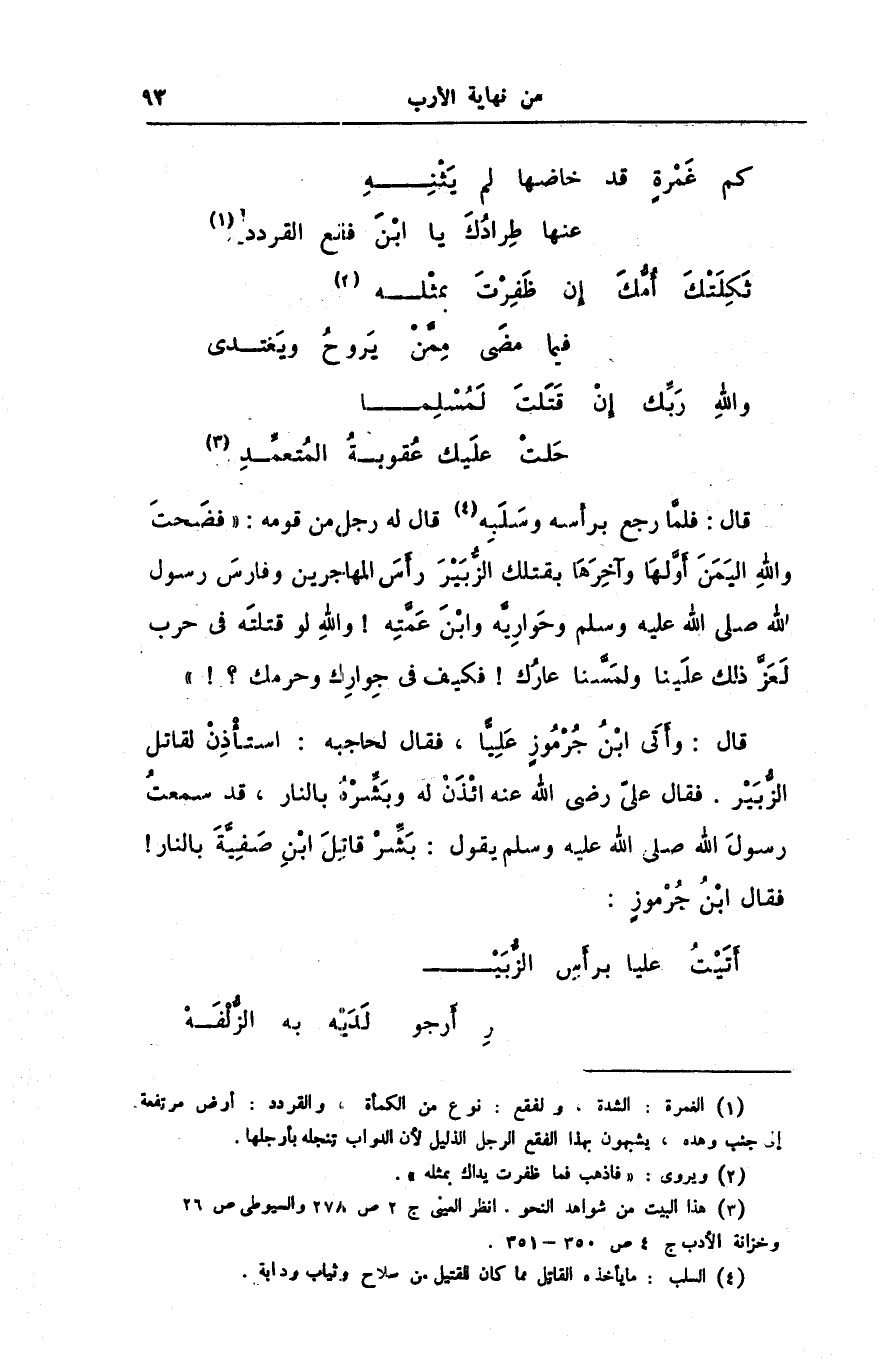 من نهاية الأرب ٩٣
كم غَمْرةٍ قد خاضها لم يَثْنِــــهِ
عنها طِرادُكَ يا ابْنَ فاقع القردد (١)
ثَكِلَتْكَ أُمُّكَ إن ظَفِرْتَ بمثْلــه (٢)
فيما مضَى مِمَّنْ يَروحُ ويَغتــدى
واللهِ رَبِّك إنْ قَتَلتَ لَمُسْلِمــــا
حَلتْ علَيك عُقوبــةُ المُتعمِّــدِ (٣)
قال : فلمَّا رجع برأسه وسَلَبِه (٤) قال له رجل من قومه : « فضَحتَ
واللهِ اليَمَنَ أوَّلَها وآخِرَهَا بقتلك الزُّبَيْرَ رأسَ المهاجرين وفارسَ رسول
الله صلى الله عليه وسلم وحَوارِيَّه وابْنَ عَمَّتِه ! واللهِ لو قتلتَه فى حرب
لَعَزَّ ذلك علَينا ولمَسَّنا عارُك ! فكيف فى جِوارِك وحرمك ؟ ! »
قال : وأَتَى ابْنُ جُرْمُوزٍ عَلِيًّا ، فقال لحاجبه : استأْذِنْ لقاتل
الزُّبَيْر . فقال علىّ رضى الله عنه ائْذَنْ له وبَشِّرْهُ بالنار ، قد سمعتُ
رسولَ الله صلى الله عليه وسلم يقول : بَشِّرْ قاتِلَ ابْنِ صَفِيَّةَ بالنار !
فقال ابْنُ جُرْموزٍ :
أَتَيْتُ عليا برأسِ الزُّبَيْــــ
رِ أَرجو لَدَيْه به الزُّلْفَــهْ
(١) الغمرة : الشدة ، و لفقع : نوع من الكمأة ، والقردد : أرض مرتفعة
إلى جنب وهده ، يشبهون بهذا الفقع الرجل الذليل لأن الدواب تنجله بأرجلها .
(٢) ويروى : « فاذهب فما ظفرت يداك بمثله » .
(٣) هذا البيت من شواهد النحو . انظر العينى ج ٢ ص ٢٧٨ والسيوطى ص ٢٦
وخزانة الأدب ج ٤ ص ٣٥٠ – ٣٥١ .
(٤) السلب : مايأخذه القاتل مما كان للقتيل من سلاح وثياب ودابة .